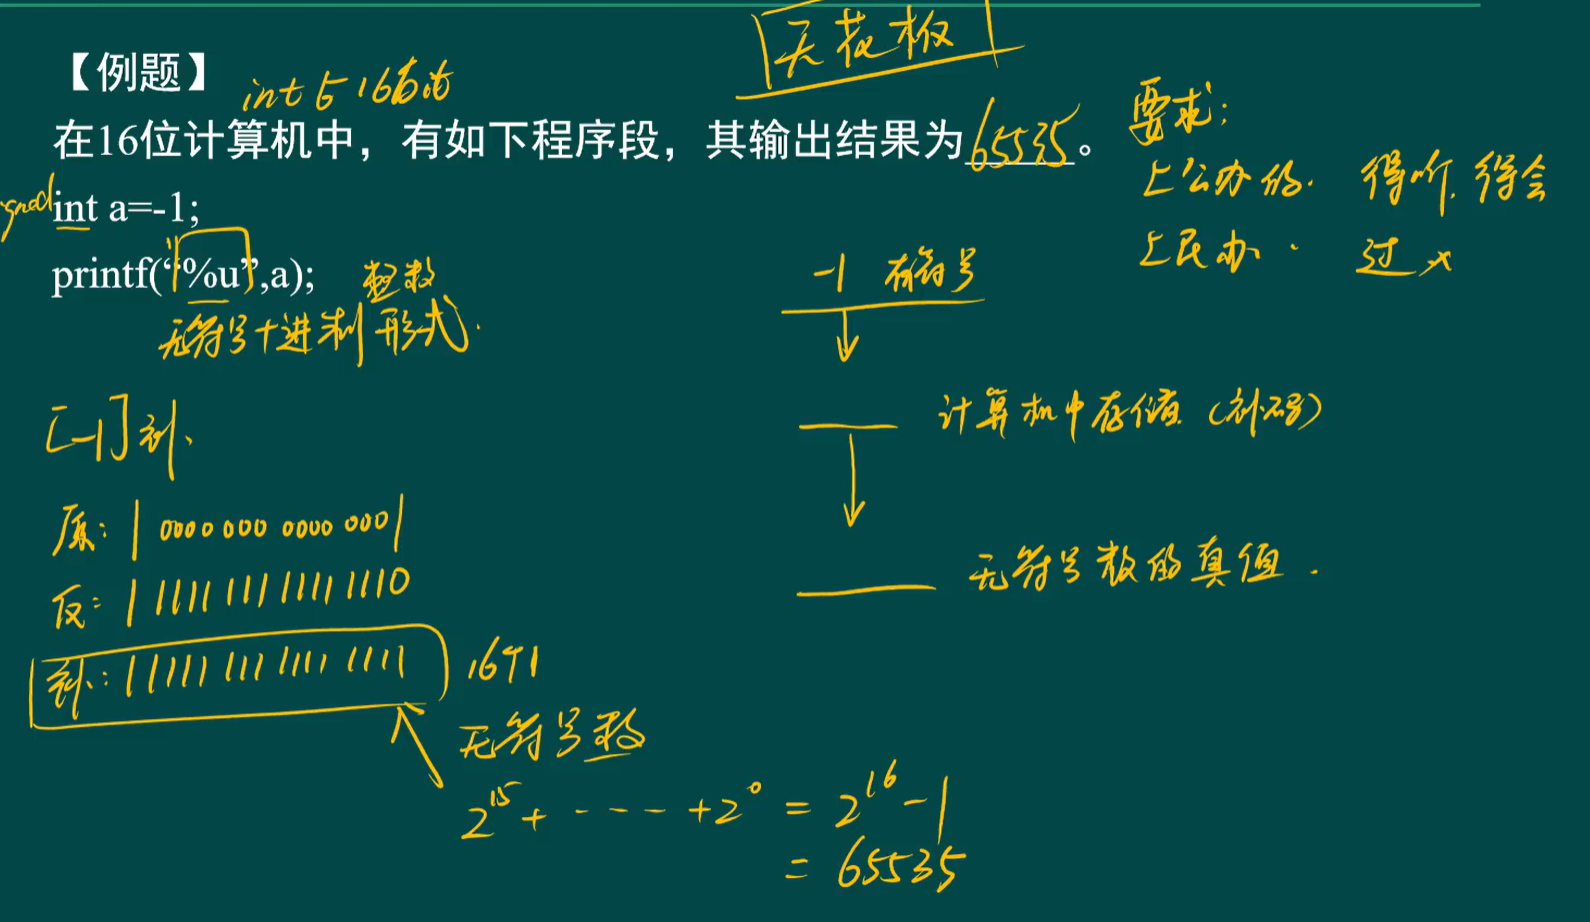 天花板
【例题】
int 占16位的
在16位计算机中，有如下程序段，其输出结果为65535。
要求：
上公办的. 得听, 得会
上民办. 过
int a=-1;
printf("%u",a);
整数
无符号十进制形式.
-1 有符号
计算机中存储 (补码)
无符号数的真值.
[-1]补
原: 1 0000 000 0000 0001
反: 1 1111 111 1111 1110
补: 11111 111 1111 1111
16个1
无符号数
2¹⁵+-----+2⁰ = 2¹⁶-1
= 65535